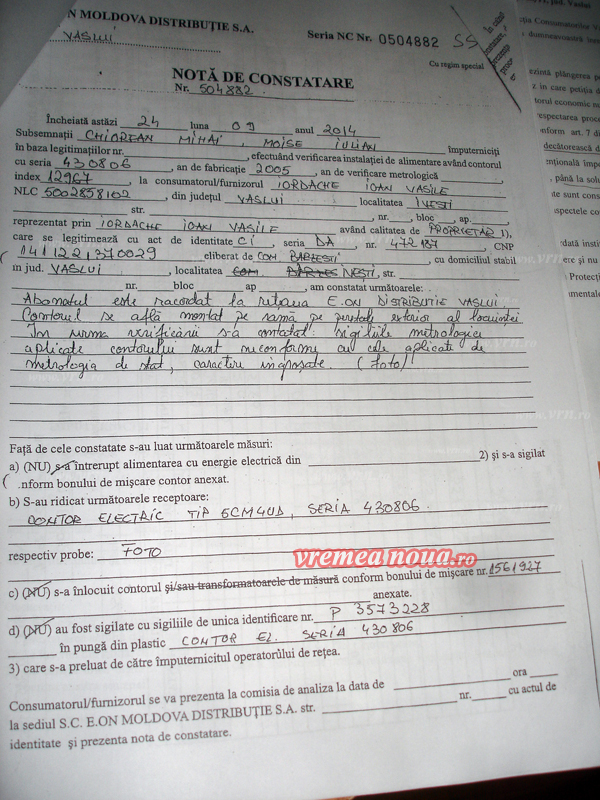 ON MOLDOVA DISTRIBUȚIE S.A.
VASLUI
Seria NC Nr. 0504882 SS
Cu regim special
NOTĂ DE CONSTATARE
Nr. 504882
Încheiată astăzi 24 luna 09 anul 2014
Subsemnații CHIOREAN MIHAI, MOISE IULIAN împuterniciți
în baza legitimațiilor nr. , efectuând verificarea instalației de alimentare având contorul
cu seria 430806, an de fabricație 2005, an de verificare metrologică
index 12967, la consumatorul/furnizorul IORDACHE IOAN VASILE
NLC 5002858102, din județul VASLUI localitatea IVEȘTI
str. nr. , bloc , ap.
reprezentat prin IORDACHE IOAN VASILE având calitatea de PROPRIETAR 1),
care se legitimează cu act de identitate CI, seria DA, nr. 472187, CNP
1411221370029 eliberat de COM BĂRTEȘTI cu domiciliul stabil
în jud. VASLUI, localitatea IVEȘTI, str.
nr. bloc ap , am constatat următoarele:
Abonatul este racordat la rețeaua E.ON DISTRIBUTIE VASLUI
Contorul se află montat pe ramă pe peretele exterior al locuinței
În urma verificării s-a contatat: sigiliile metrologice
aplicate contorului sunt neconforme cu cele aplicate de
metrologia de stat, caractere îngroșate. (Foto)
Față de cele constatate s-au luat următoarele măsuri:
a) (NU) s-a întrerupt alimentarea cu energie electrică din 2) și s-a sigilat
nform bonului de mișcare contor anexat.
b) S-au ridicat următoarele receptoare:
CONTOR ELECTRIC TIP 6CM4UD, SERIA 430806
respectiv probe: FOTO
vremea noua.ro
c) (NU) s-a înlocuit contorul și/sau transformatoarele de măsură conform bonului de mișcare nr. 1561927
anexate.
d) (NU) au fost sigilate cu sigiliile de unica identificare nr. P 3573228
în pungă din plastic CONTOR EL. SERIA 430806
3) care s-a preluat de către împuternicitul operatorului de rețea.
Consumatorul/furnizorul se va prezenta la comisia de analiza la data de ora
la sediul S.C. E.ON MOLDOVA DISTRIBUȚIE S.A. str. nr. cu actul de
identitate și prezenta nota de constatare.